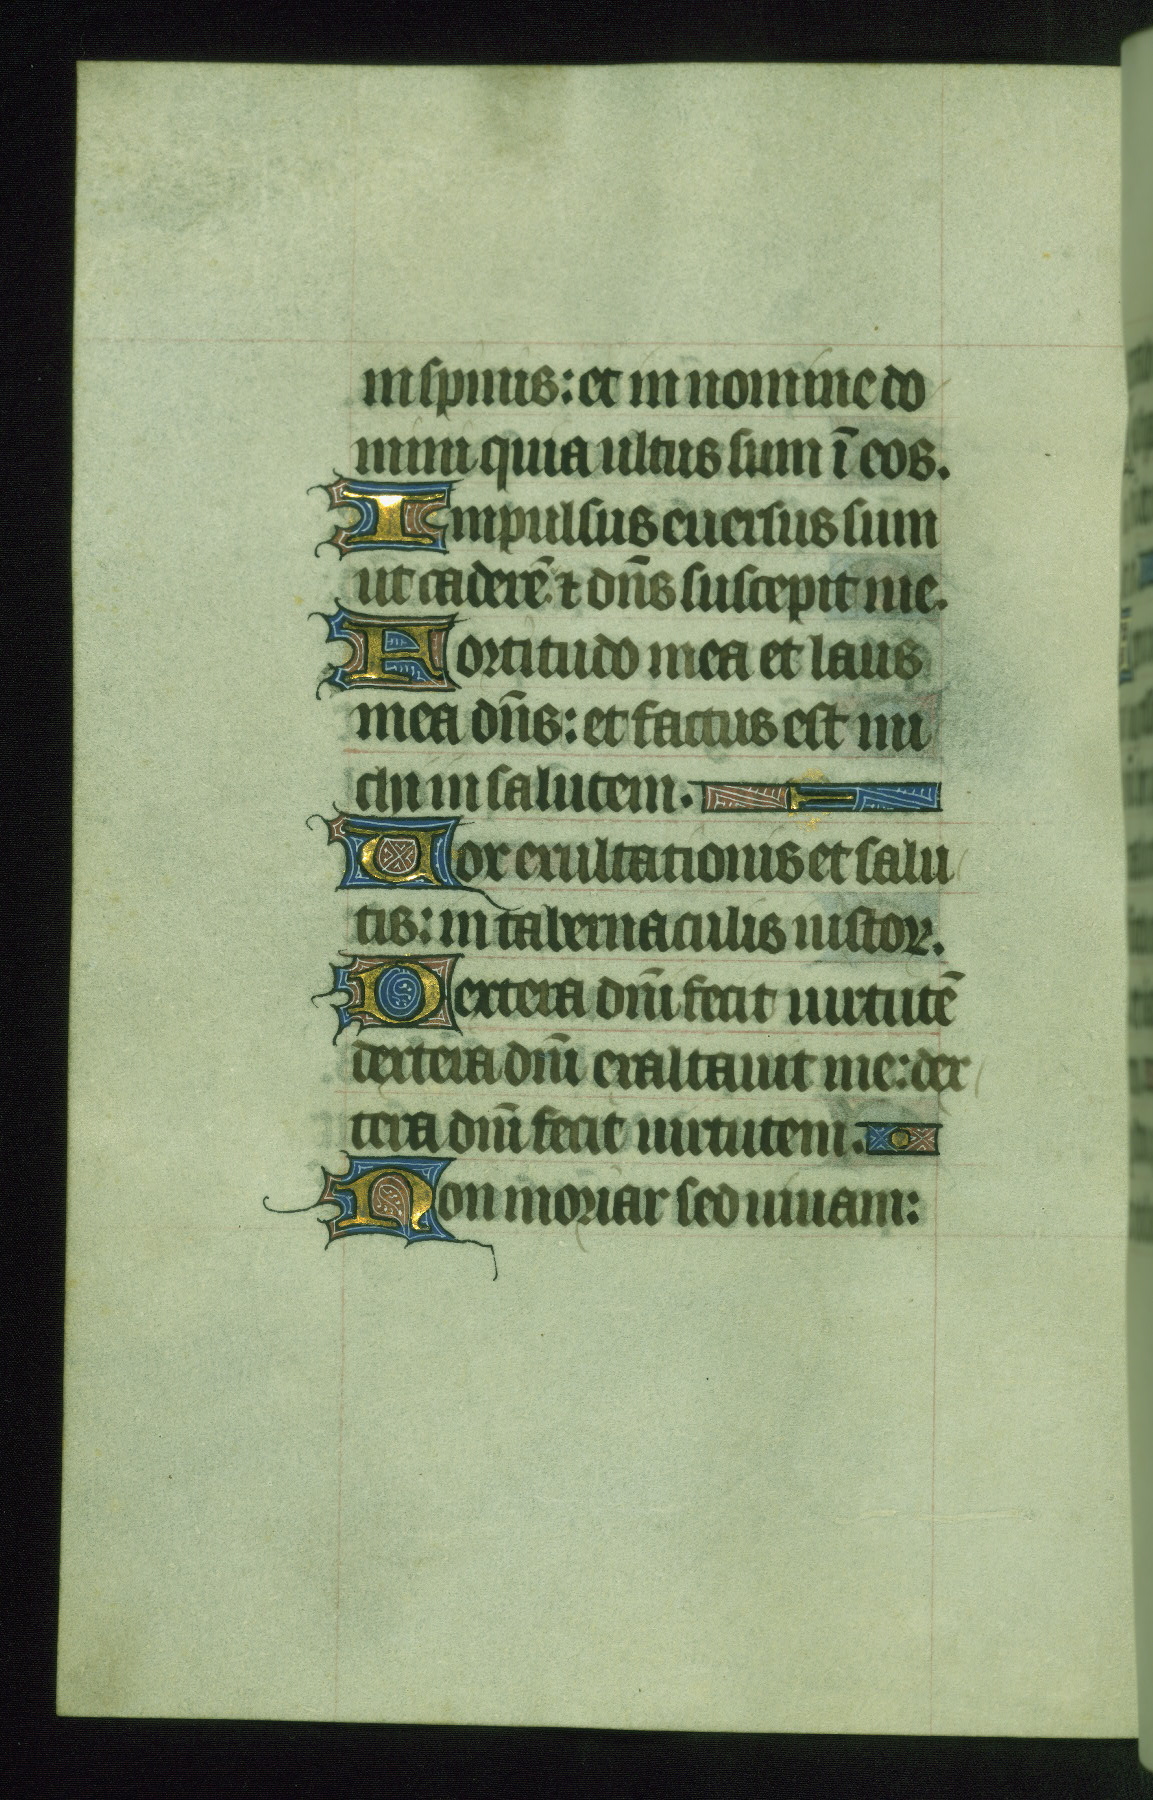 in spinis: et in nomine do
mini quia ultus sum ī eos.
Impulsus euersus sum
ut caderē ⁊ dn̄s suscepit me.
Fortitudo mea et laus
mea dn̄s: et factus est mi
chi in salutem.
Uox exultationis et salu
tis: in tabernaculis iustoꝝ.
Dextera dn̄i fecit uirtutē
dextera dn̄i exaltauit me: dex
tera dn̄i fecit uirtutem.
Non moriar sed uiuam: